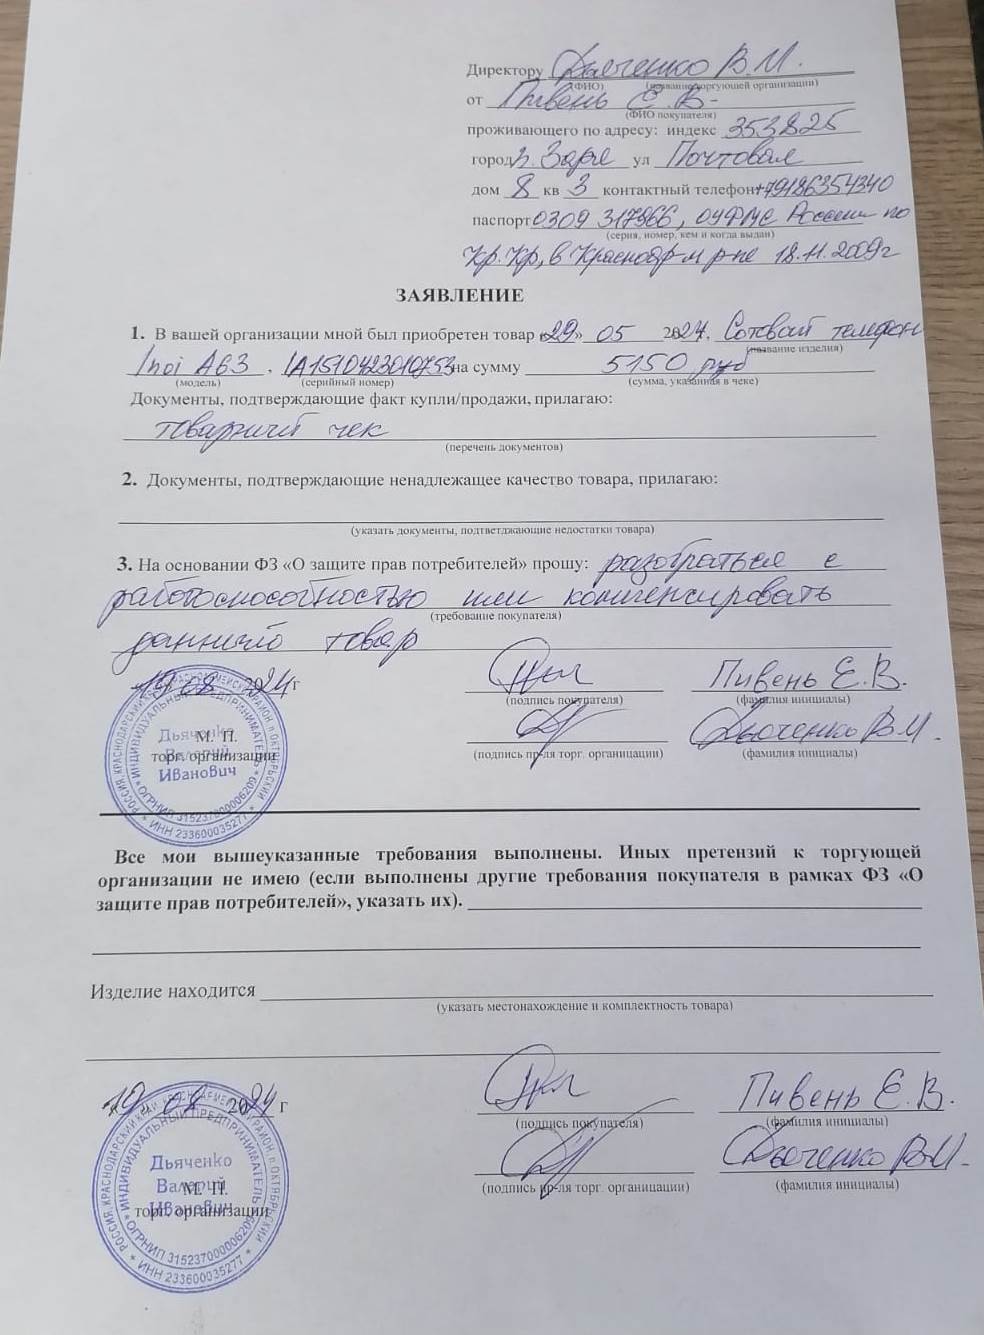 Директору Дьяченко В.И.
(ФИО) (название торгующей организации)
от Пивень Е.В.
(ФИО покупателя)
проживающего по адресу: индекс 353825
город п. Заря ул Почтовая
дом 8 кв 3 контактный телефон +79186354340
паспорт 0309 317966, ОУФМС России по
(серия, номер, кем и когда выдан)
Кр. Кр, в Красноарм р-не 18.11.2009г
ЗАЯВЛЕНИЕ
1. В вашей организации мной был приобретен товар «29» 05 2024. Сотовый телефон
(название изделия)
Inoi A63, IA1510423010753 на сумму 5150 руб
(модель) (серийный номер) (сумма, указанная в чеке)
Документы, подтверждающие факт купли/продажи, прилагаю:
товарный чек
(перечень документов)
2. Документы, подтверждающие ненадлежащее качество товара, прилагаю:
(указать документы, подтветджающие недостатки товара)
3. На основании ФЗ «О защите прав потребителей» прошу: разобраться с
работоспособностью или компенсировать
(требование покупателя)
данного товар
19 08 2024г Пивень Е.В.
(подпись покупателя) (фамилия инициалы)
Дьяченко В.И.
М. П.
торг. организации (подпись пр-ля торг. органицации) (фамилия инициалы)
РОССИЯ, КРАСНОДАРСКИЙ КРАЙ, КРАСНОАРМЕЙСКИЙ РАЙОН, п. ОКТЯБРЬСКИЙ
* ИНДИВИДУАЛЬНЫЙ ПРЕДПРИНИМАТЕЛЬ *
Дьяченко
Валерий
Иванович
ОГРНИП 315237000006209
* ИНН 233600035277 *
Все мои вышеуказанные требования выполнены. Иных претензий к торгующей
организации не имею (если выполнены другие требования покупателя в рамках ФЗ «О
защите прав потребителей», указать их).
Изделие находится
(указать местонахождение и комплектность товара)
«19» 08 2024 г Пивень Е.В.
(подпись покупателя) (фамилия инициалы)
Дьяченко В.И.
М. П.
торг. организации (подпись пр-ля торг. органицации) (фамилия инициалы)
РОССИЯ, КРАСНОДАРСКИЙ КРАЙ, КРАСНОАРМЕЙСКИЙ РАЙОН, п. ОКТЯБРЬСКИЙ
* ИНДИВИДУАЛЬНЫЙ ПРЕДПРИНИМАТЕЛЬ *
Дьяченко
Валерий
Иванович
ОГРНИП 315237000006209
* ИНН 233600035277 *